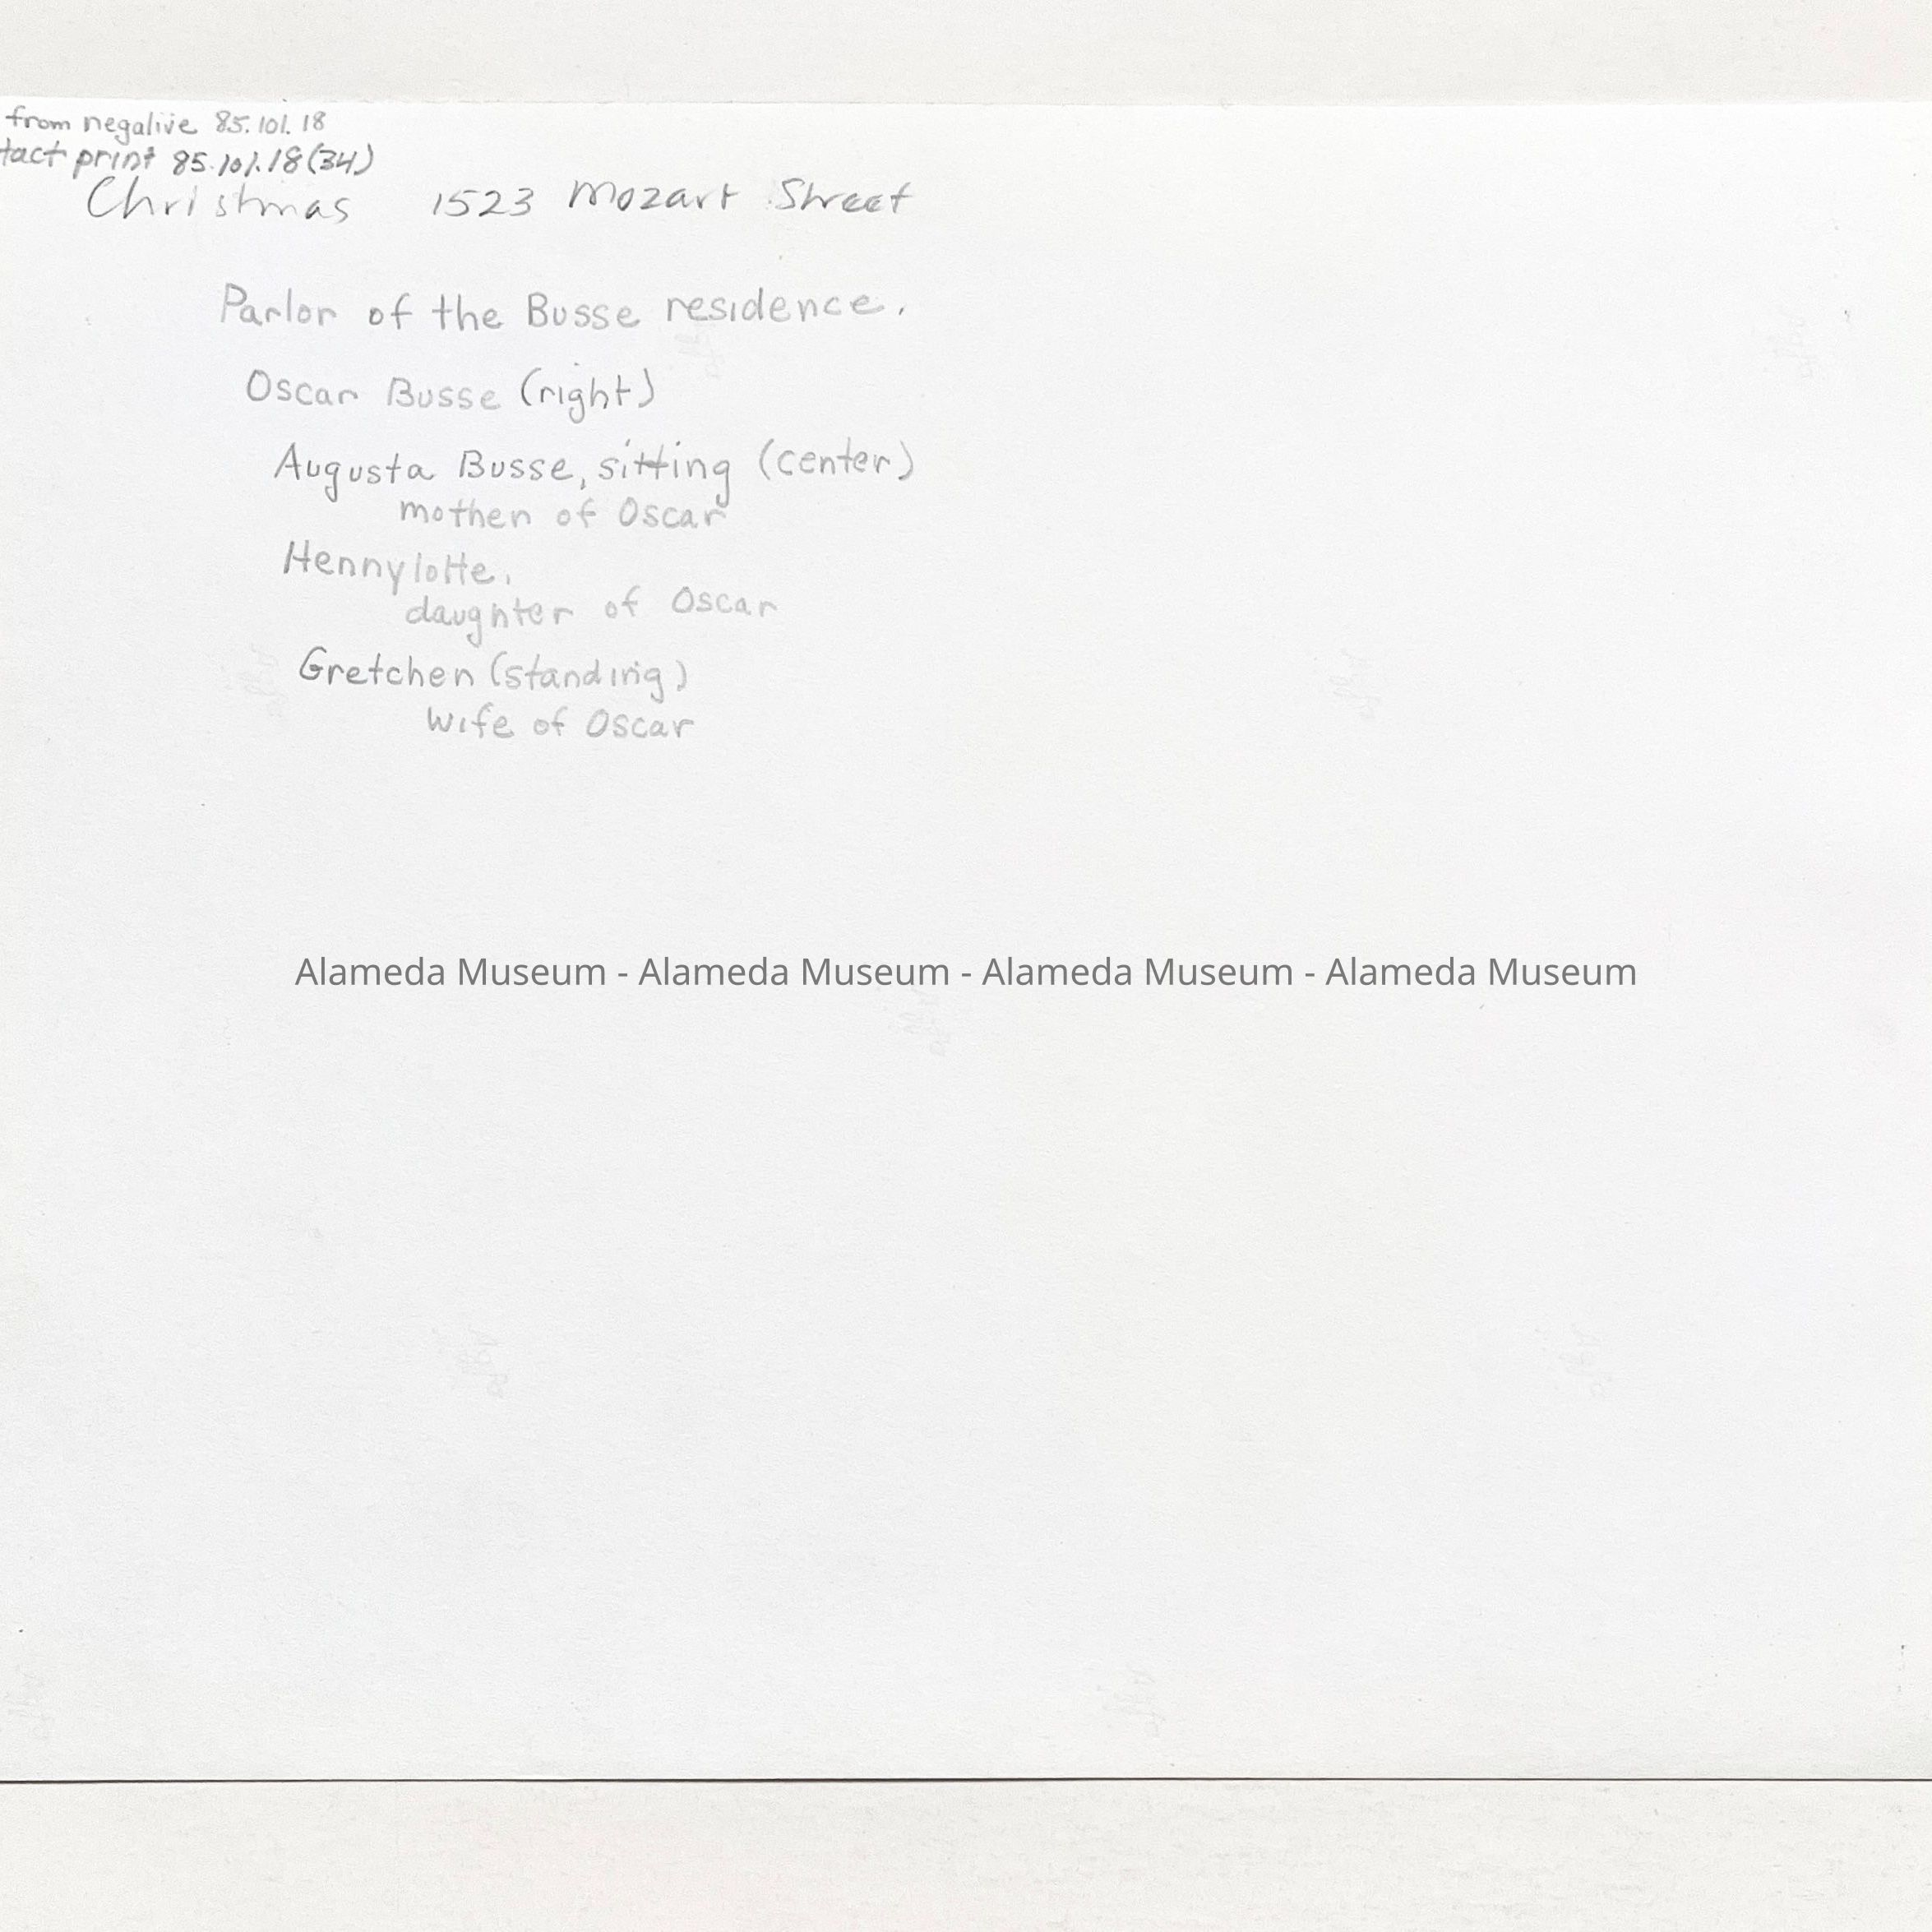 from negative 85.101.18
tact print 85.101.18(34)
Christmas 1523 Mozart Street
Parlor of the Busse residence.
Oscar Busse (right)
Augusta Busse, sitting (center)
mother of Oscar
Hennylotte.
daughter of Oscar
Gretchen (standing)
wife of Oscar
Alameda Museum - Alameda Museum - Alameda Museum - Alameda Museum